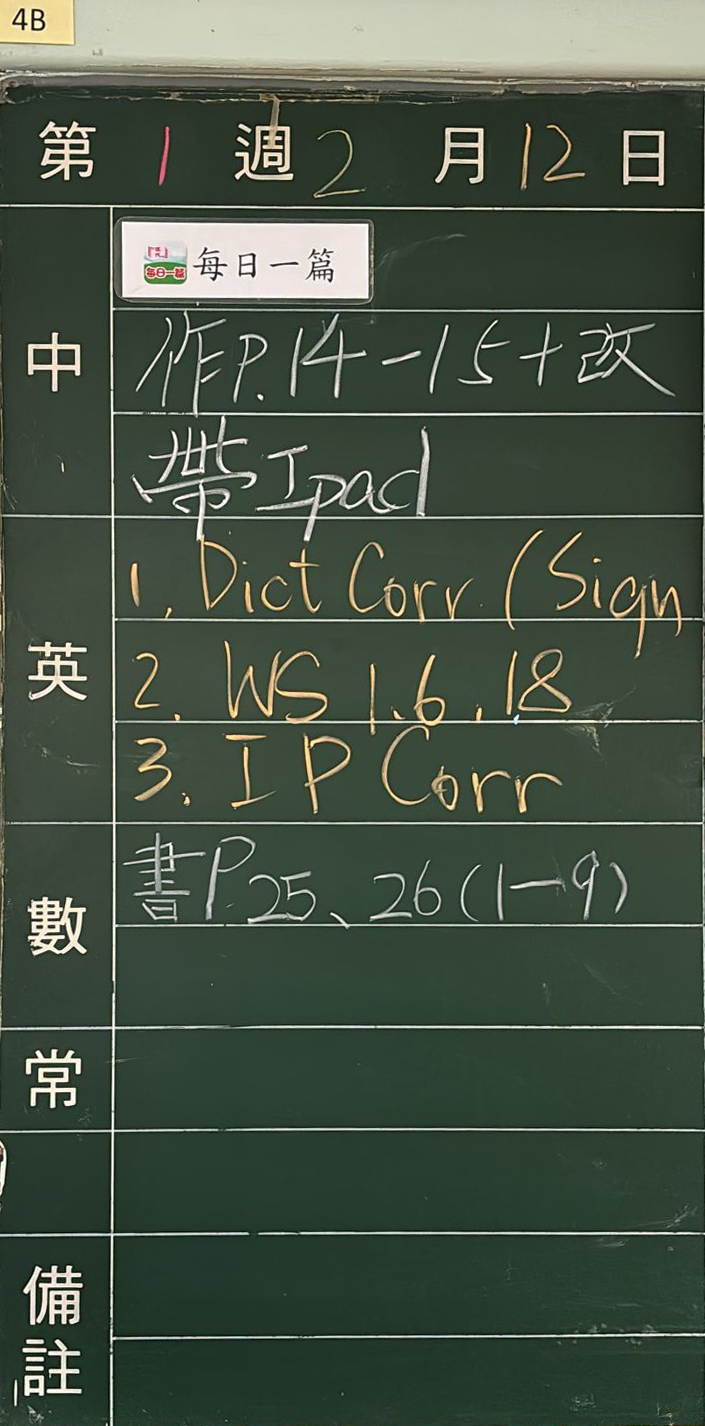 4B
第 1 週 2 月 12 日
中
每日一篇 每日一篇
作P.14-15+改
帶Ipad
英
1. Dict Corr (Sign
2. WS 1.6, 18
3. IP Corr
數
書P.25、26(1-9)
常
備註